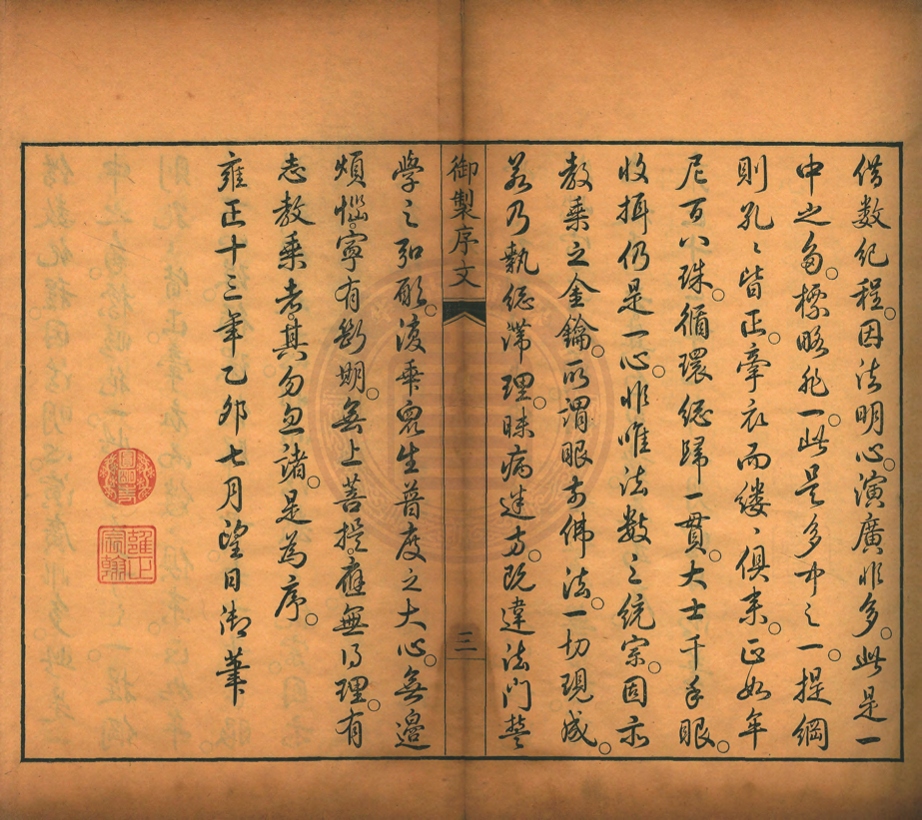 借数紀程。因法明心。演廣非多。此是一
中之多。標略非一。此是多中之一。提綱
則孔〻皆正。牽衣而縷〻俱来。正如牟
尼百八珠。循環総歸一貫。大士千手眼。
收攝仍是一心。非唯法数之統宗。固亦
教乗之金鑰。所謂眼前佛法。一切現成。
若乃執総滯理。昧病迷方。既違法門誓
御製序文
三
學之弘願。復乖衆生普度之大心。無邉
煩惱。寧有断期。無上菩提。應無得理。有
志教乗者。其勿忽諸。是為序。
雍正十三年乙卯七月望日御筆
雍正宸翰